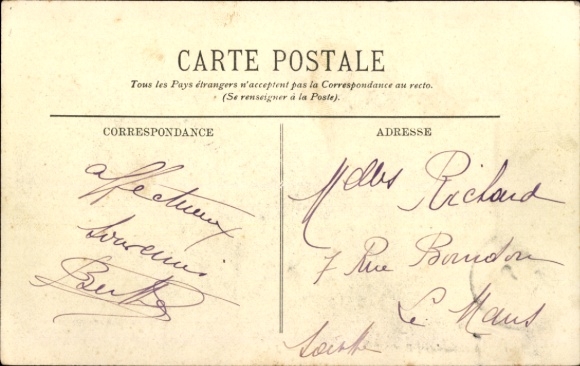 CARTE POSTALE
Tous les Pays étrangers n'acceptent pas la Correspondance au recto.
(Se renseigner à la Poste).
CORRESPONDANCE
affectueux
souvenir
Berthe
ADRESSE
Melles Richard
7 Rue Bourdon
Le Mans
Sarthe